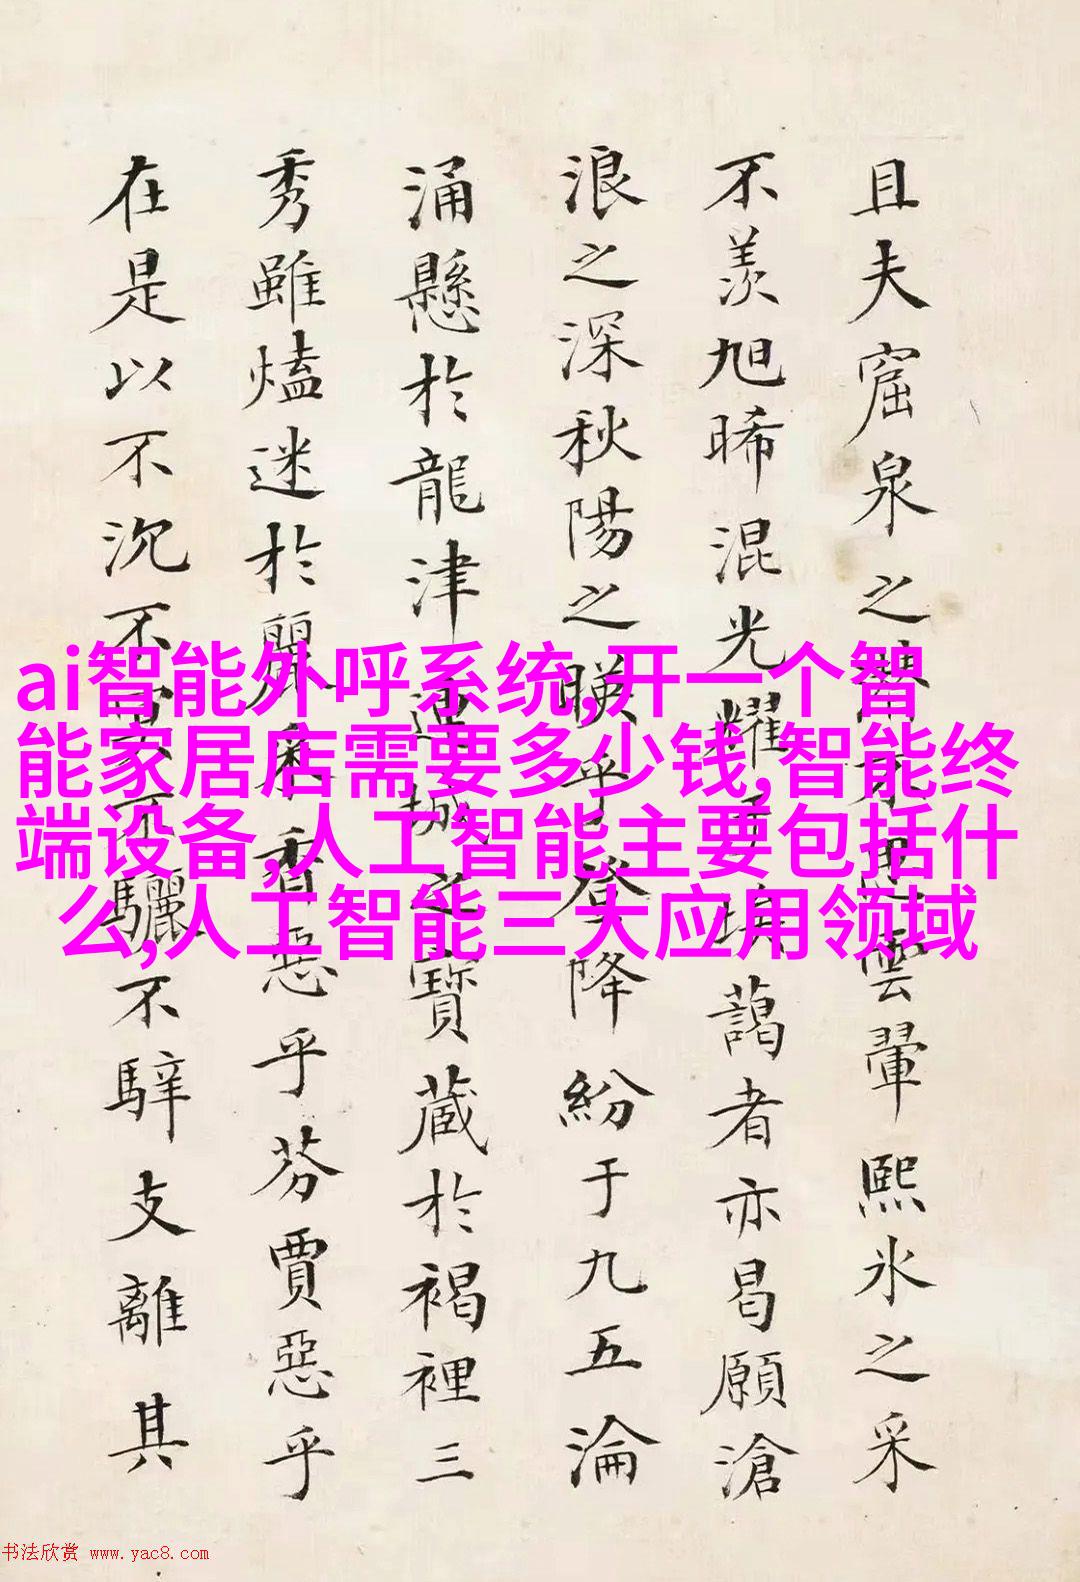 且夫窟泉之雲翬熙氷之采
不羨旭晞混光耀藹者亦曷願滄
浪之深秋陽之暎乎登降紛于九五淪
涌懸於龍津連城之寶藏於褐裡三
秀雖迷於麗采香惡乎芬賈惡乎
在是以不沉不不驪不騂支離其
ai智能外呼系统,开一个智
能家居店需要多少钱,智能终
端设备,人工智能主要包括什
么,人工智能三大应用领域
书法欣赏 www.yac8.com